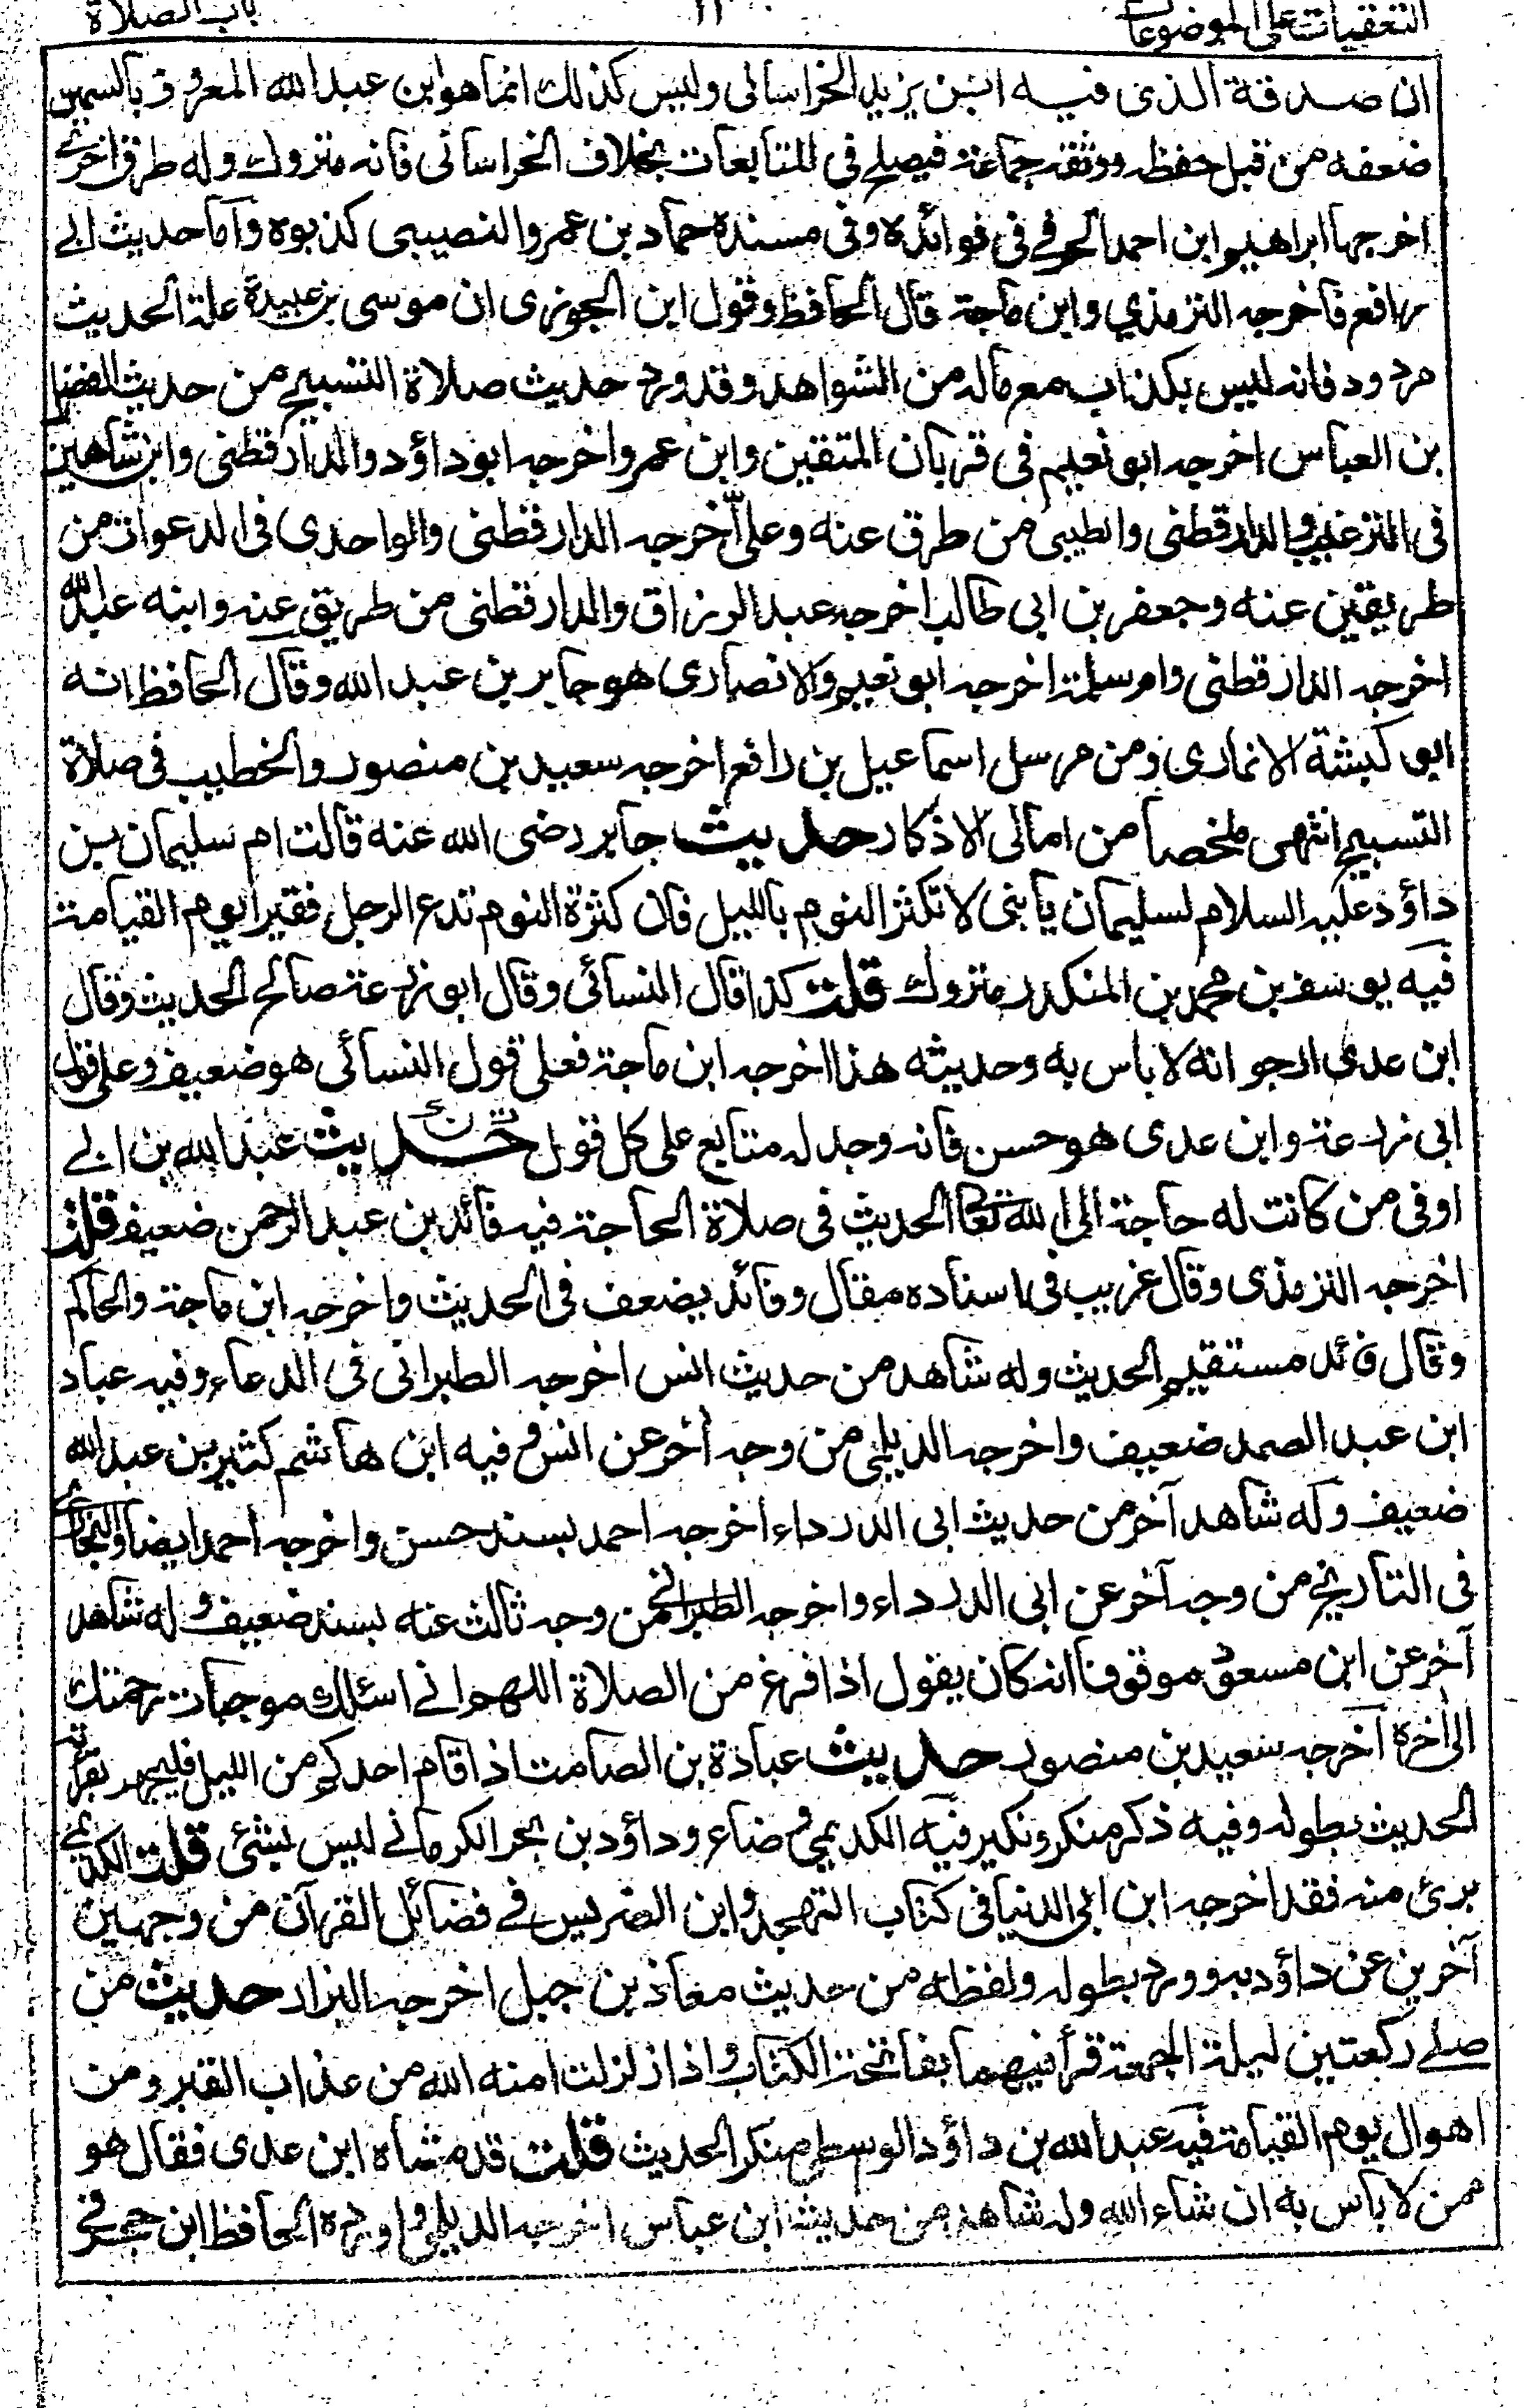 التعقبات على الموضوعات ١١ باب الصلاة
ان صدقة الذى فيه ابن يزيد الخراسانى وليس كذلك انما هو ابن عبد الله المعروف بالسمين
ضعفه من قبل حفظه ووثقه جماعة فيصلح فى المتابعات بخلاف الخراسانى فانه متروك وله طرق اخرى
اخرجها ابراهيم ابن احمد الحرفى فى فوائده وفى مسنده حماد بن عمرو النصيبى كذبوه واما حديث ابى
رافع فاخرجه الترمذي وابن ماجة قال الحافظ وقول ابن الجوزى ان موسى بن عبيدة علة الحديث
مردود فانه ليس بكذاب مع ماله من الشواهد وقد ورد حديث صلاة التسبيح من حديث الفضل
بن العباس اخرجه ابو نعيم فى قربان المتقين وابن عمرو اخرجه ابو داؤد والدارقطنى وابن شاهين
فى الترغيب والدارقطنى من طرق عنه وعلى اخرجه الدارقطنى والواحدى فى الدعوات من
طريقين عنه وجعفر بن ابى طالب اخرجه عبد الرزاق والدارقطنى من طريق عنه وابنه عبد الله
اخرجه الدارقطنى وام سلمة اخرجه ابو نعيم والانصارى هو جابر بن عبد الله وقال الحافظ انه
ابو كبشة الانمارى ومن مرسل اسماعيل بن رافع اخرجه سعيد بن منصور والخطيب فى صلاة
التسبيح انتهى ملخصا من امالى الاذكار حديث جابر رضى الله عنه قالت ام سليمان بن
داؤد عليه السلام لسليمان يا بنى لا تكثر النوم بالليل فان كثرة النوم تدع الرجل فقيرا يوم القيامة
فيه يوسف بن محمد بن المنكدر متروك قلت كذا قال النسائى وقال ابو زرعة صالح الحديث وقال
ابن عدى ارجو انه لا باس به وحديثه هذا اخرجه ابن ماجة فعلى قول النسائى هو ضعيف وعلى قول
ابى زرعة وابن عدى هو حسن فانه وجد له متابع على كل قول حديث عبد الله بن ابى
اوفى من كانت له حاجة الى الله تعا الحديث فى صلاة الحاجة فيه فائد بن عبد الرحمن ضعيف قلت
اخرجه الترمذى وقال غريب فى اسناده مقال وفائد يضعف فى الحديث واخرجه ابن ماجة والحاكم
وقال فائد مستقيم الحديث وله شاهد من حديث انس اخرجه الطبرانى فى الدعاء وفيه عباد
ابن عبد الصمد ضعيف واخرجه الديلمى من وجه آخر عن انس وفيه ابن هاشم كثير بن عبد الله
ضعيف وله شاهد آخر من حديث ابى الدرداء اخرجه احمد بسند حسن واخرجه احمد ايضا والبخارى
فى التاريخ من وجه آخر عن ابى الدرداء واخرجه الطبرانى من وجه ثالث عنه بسند ضعيف وله شاهد
آخر عن ابن مسعود موقوفا انه كان يقول اذا فرغ من الصلاة اللهم انى اسئلك موجبات رحمتك
الى آخره اخرجه سعيد بن منصور حديث عبادة بن الصامت اذا قام احدكم من الليل فليجهر بقرأته
الحديث بطوله وفيه ذكر منكر ونكير فيه الكديمى وضاع وداؤد بن بحر الكرمانى ليس بشئ قلت الكديمى
برئ منه فقد اخرجه ابن ابى الدنيا فى كتاب التهجد وابن الضريس فى فضائل القرآن من وجهين
آخرين عن داؤد به وورد بطوله ولفظه من حديث معاذ بن جبل اخرجه البزار حديث من
صلى ركعتين ليلة الجمعة قرأ فيهما بفاتحة الكتاب واذا زلزلت امنه الله من عذاب القبر ومن
اهوال يوم القيامة فيه عبد الله بن داؤد الوسطى منكر الحديث قلت قد مشاه ابن عدى فقال هو
ممن لا باس به ان شاء الله وله شاهد من حديث ابن عباس اخرجه الديلمى واورده الحافظ ابن حجر فى